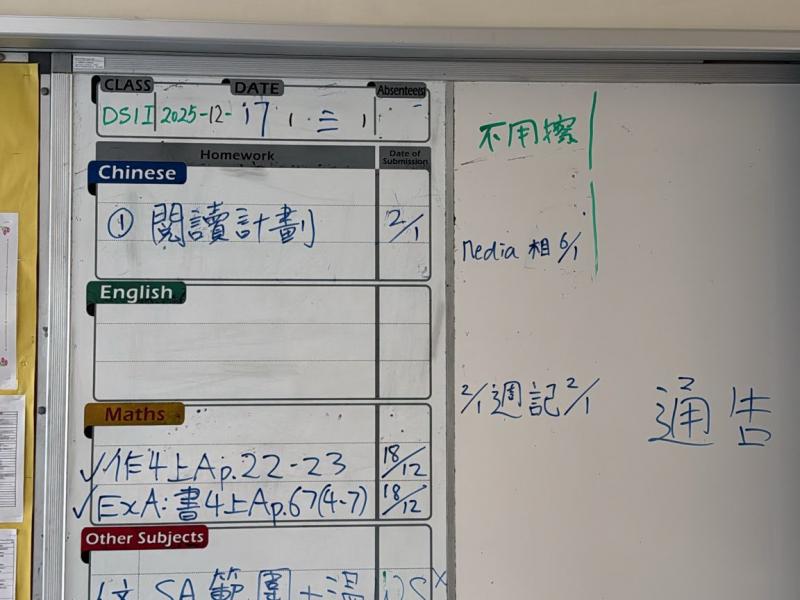 CLASS DATE Absentee(s)
2025-12-17 三
Homework Date of Submission
Chinese
① 閱讀計劃 2/1
English
Maths
✓作4上Ap.22-23 18/12
✓ExA:書4上Ap.67(4-7) 18/12
Other Subjects
SA範圍+溫
不用擦
Media 相 6/1
2/1 週記 2/1
通告